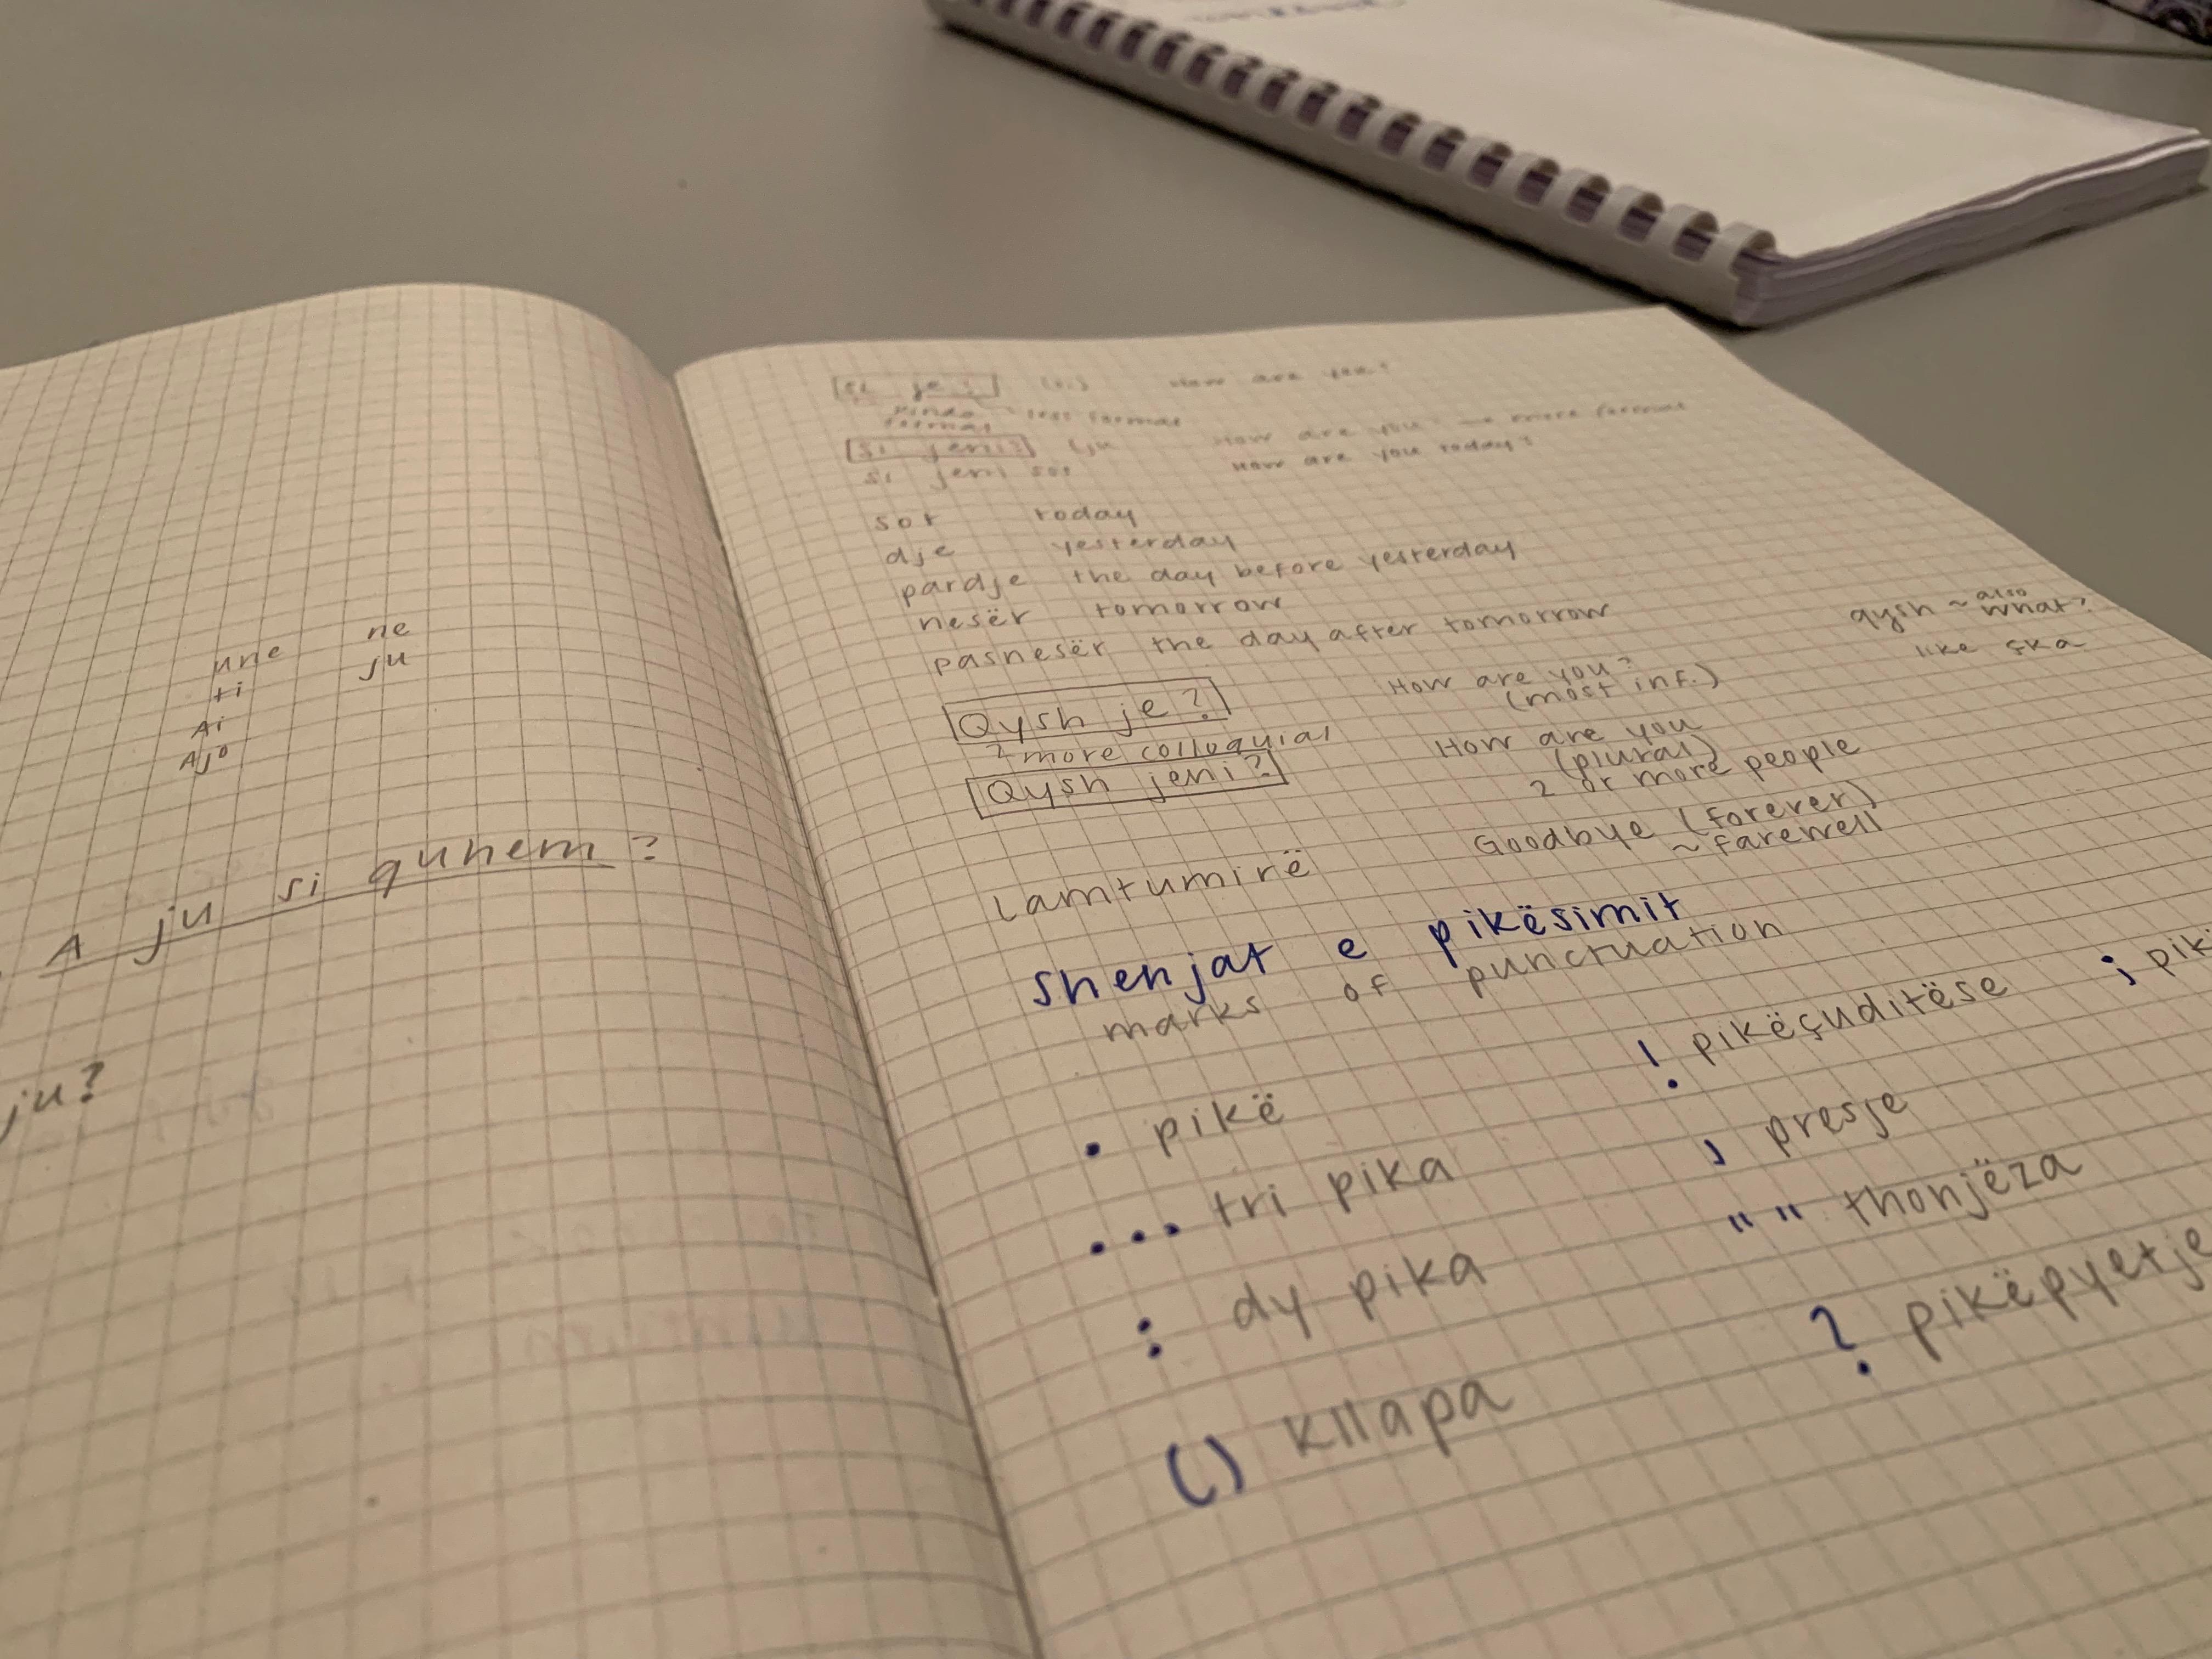 une ne
ti ju
Ai
Ajo
A ju si quhem?
ju?
si je? How are you?
less formal
si jeni? (ju How are you? more formal
si jeni sot How are you today?
sot today
dje yesterday
pardje the day before yesterday
nesër tomorrow
pasnesër the day after tomorrow
qysh ~ also what?
like çka
Qysh je? How are you?
(most inf.)
more colloquial
Qysh jeni? How are you
(plural)
2 or more people
Lamtumirë Goodbye (forever)
~ farewell
shenjat e pikësimit
marks of punctuation
. pikë
... tri pika
: dy pika
() kllapa
! pikëçuditëse
, presje
" " thonjëza
? pikëpyetje
; pik